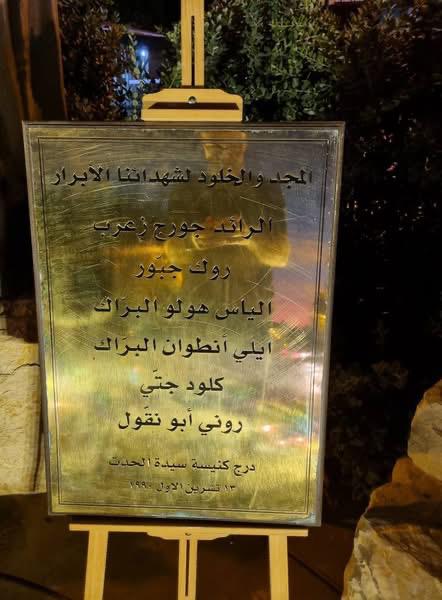 المجد والخلود لشهدائنا الأبرار
الرائد جورج زعرب
روك جبّور
الياس هولو البرّاك
ايلي أنطوان البرّاك
كلود جتّي
روني أبو نقّول
درج كنيسة سيدة الحدث
١٣ تشرين الاول ١٩٩٠